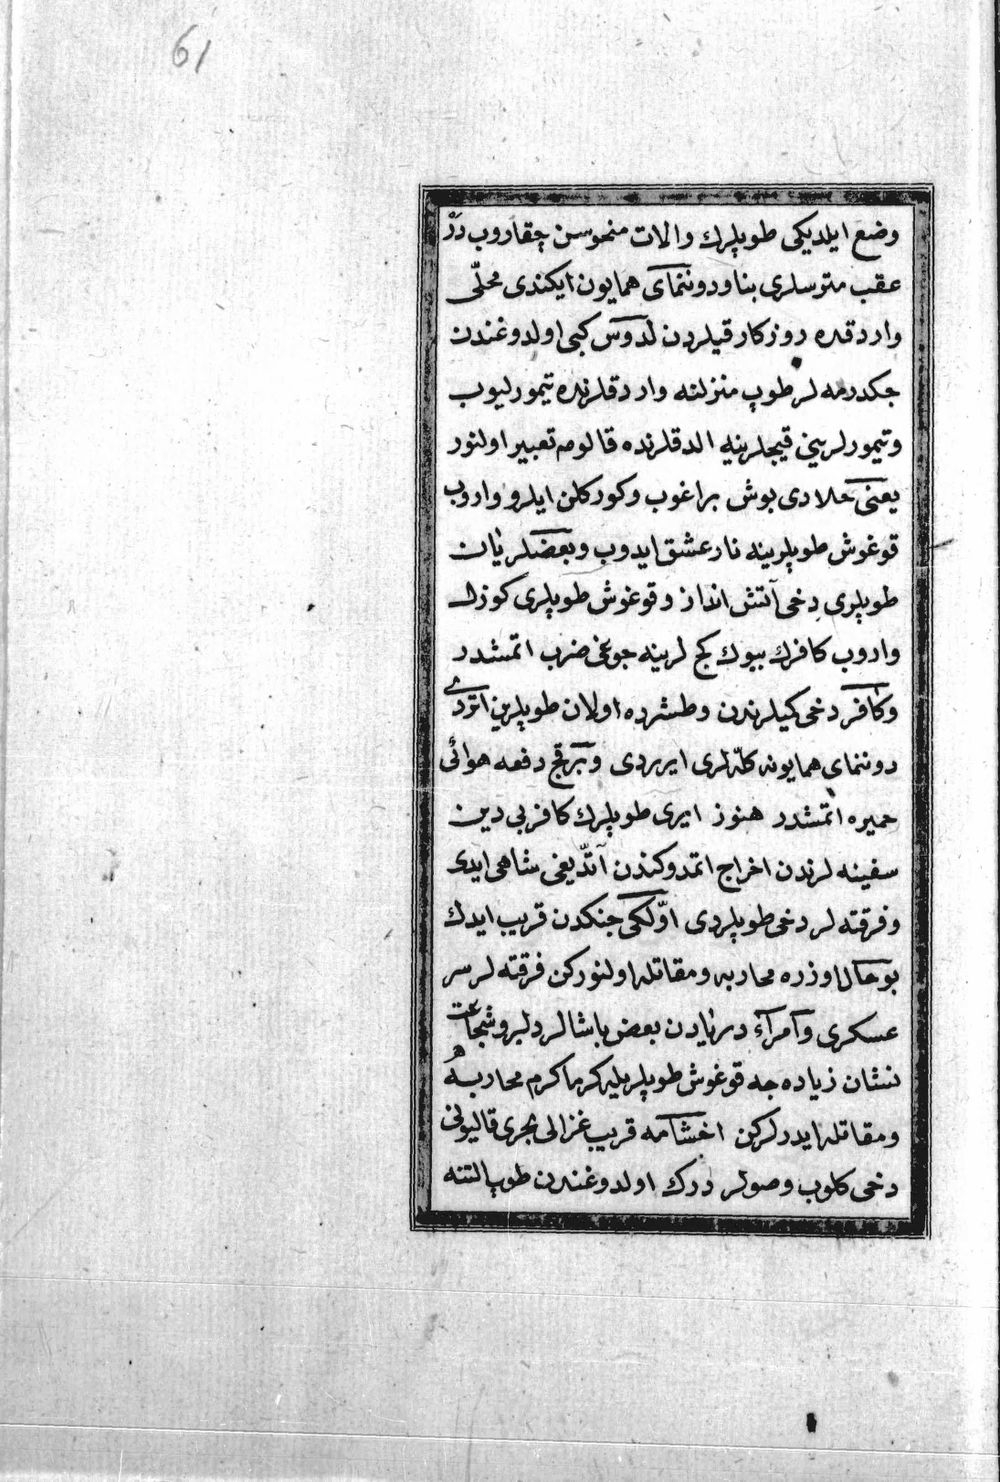 61
وضع ایلدیکی طوپلرك والات منحوسن چقاروب درّ
عقب مترسلری بنا و دوننمای همایون ایکندی محلّی
وارد قده روزکار قیلردن لدوس کبی اولدوغندن
جکدرمه لر طوپ منزلنه وارد قلرنده تیمورلیوب
وتیمورلرینی قیجلرینه الدقلرنده قالومه تعبیر اولنور
یعنی حلادی بوش براغوب وکورکلن ایلرو واروب
قوغوش طوپلرینه نار عشق ایدوب وبعضلر یان
طوپلری دخی آتش انداز وقوغوش طوپلری کوزل
واروب کافرك بیوك کج لرینه جوغی ضرب اتمشدر
وکافر دخی کیلرندن وطشرده اولان طوپلرین اتردی
دوننمای همایونه کلّه لری ایرردی وبرقچ دفعه هوائی
حمیره اتمشدر هنوز ایری طوپلرك کافر بی دین
سفینه لرندن اخراج اتمدوکندن آتدیغی شاهی ایدی
وفرقته لر دخی طوپلردی اوّلکی جنکدن قریب ایدك
بو حال اوزره محاربه ومقاتله اولنورکن فرقته لر سر
عسکری وآمرآء دریادن بعض پاشالر دلیر وشجاعت
نشان زیاده جه قوغوش طوپلریله کرما کرم محاربه
ومقاتله ایدرلرکن اخشامه قریب غزالی بحری قالیونی
دخی کلوب وصولر درك اولدوغندن طوپ التنه